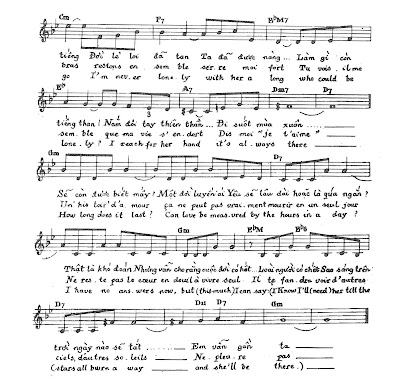 Cm F7 BbM7
tiếng Đời lẻ loi đã tan Ta đã được nàng... Làm gì còn
bras restons en sem ble serre moi fort Tu vois, il me
go I'm nev.er lone.ly with her a long who could be
Eb A7 Dsus7 D7
3
tiếng than! Nắm đôi tay thiên thần... Đi suốt mùa xuân
sem.ble que ma vie s'en.dort Dis moi "je t'aime"
lone.ly? I reach for her hand it's al.ways there
Gm
Sẽ còn được biết mấy? Một đời luyến ái Yêu sẽ lâu dài hoặc là quá ngắn?
Un' his toir' d'a mour ça ne peut pas vrai.ment mourir en un seul jour
How long does it last? Can love be meas.ured by the hours in a day?
Gm EbM Eb6
Thật là khó đoán Nhưng vẫn cho rằng cuộc đời có hết... Loài người có chết Sao sáng trên
Ne res.te pas le cœur en deuil à vivre seul Il te fau.dra voir d'autres
I have no ans.wers now, but (this much) I can say: (I know I'll) (need) her till the
D7 D11 D7 Gm
trời ngày nào sẽ tắt Em vẫn gần ta
ciels, d'autres so.leils Ne pleu.re pas
(stars all burn a way and she'll be there.)